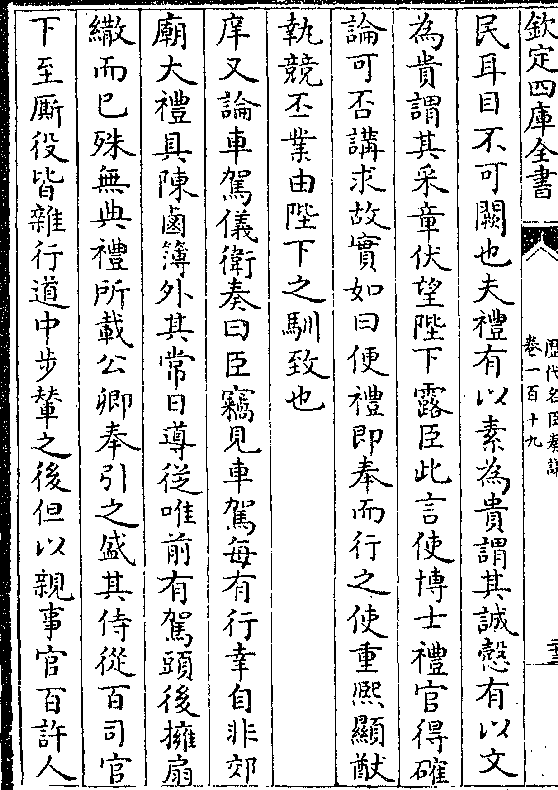 欽定四庫全書
歷代名臣奏議
卷一百十九
民耳目不可闕也夫禮有以素為貴謂其誠慤有以文
為貴謂其采章伏望陛下露臣此言使博士禮官得確
論可否講求故實如曰便禮即奉而行之使重熙顯猷
執競丕業由陛下之馴致也
庠又論車駕儀衛奏曰臣竊見車駕每有行幸自非郊
廟大禮具陳鹵簿外其常日導從唯前有駕頭後擁扇
繖而已殊無典禮所載公卿奉引之盛其侍從百司官
下至廝役皆雜行道中步輦之後但以親事官百許人